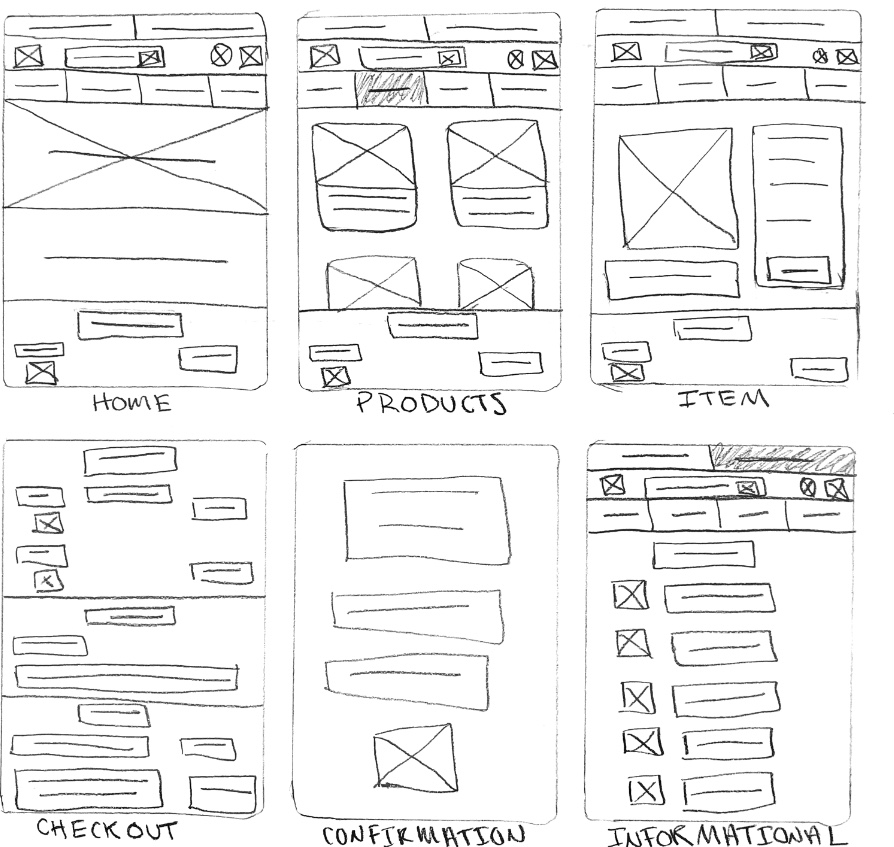 HOME
PRODUCTS
ITEM
CHECKOUT
CONFIRMATION
INFORMATIONAL